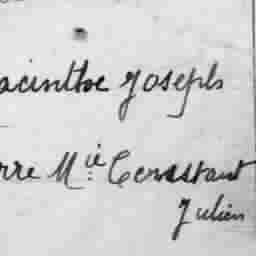 acinthe Joseph
rre M.ie Constant
Julien